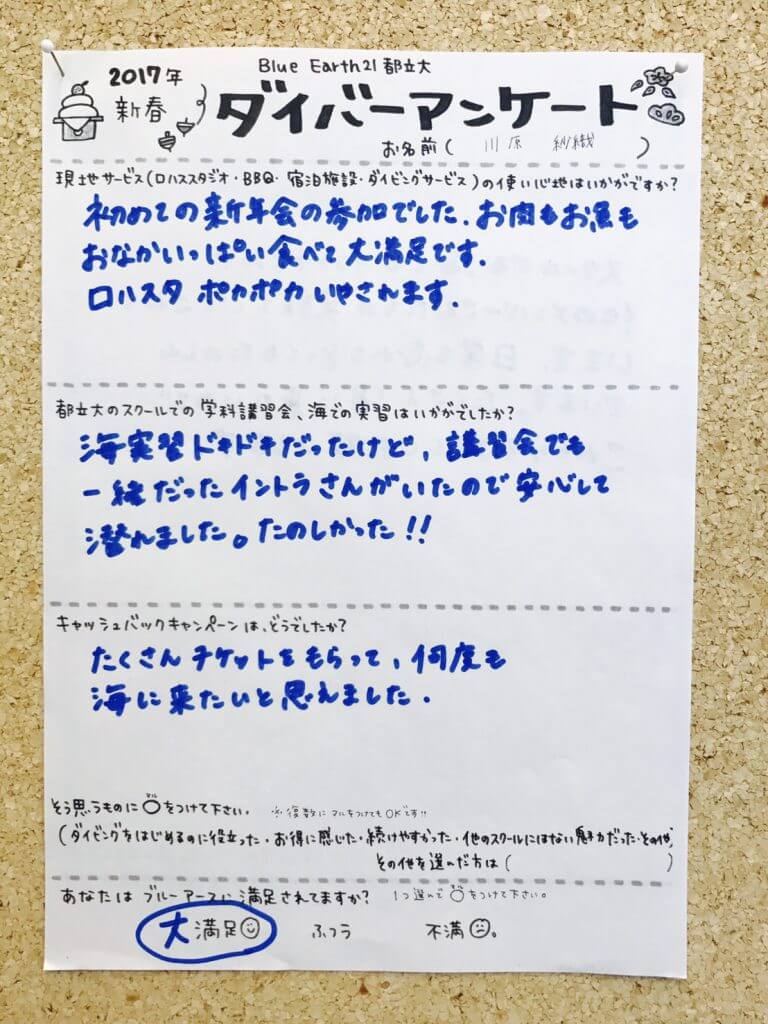 Blue Earth21 都立大
2017年
新春
ダイバーアンケート
お名前( 川原 紗織 )
現地サービス(ロハススタジオ・BBQ・宿泊施設・ダイビングサービス)の使い心地はいかがですか?
初めての新年会の参加でした。お肉もお魚も
おなかいっぱい食べて大満足です.
ロハスタ ポカポカ いやされます.
都立大のスクールでの学科講習会、海での実習はいかがでしたか?
海実習ドキドキだったけど、講習会でも
一緒だったイントラさんがいたので安心して
潜れました。たのしかった!!
キャッシュバックキャンペーンは、どうでしたか?
たくさんチケットをもらって、何度も
海に来たいと思えました.
そう思うものに○をつけて下さい。 ※複数にマルをつけてもOKです!!
(ダイビングをはじめるのに役立った・お得に感じた・続けやすかった・他のスクールにはない魅力だった・その他)
その他を選んだ方は( )
あなたはブルーアースに満足されてますか? 1つ選んで○をつけて下さい。
大満足 ふつう 不満。